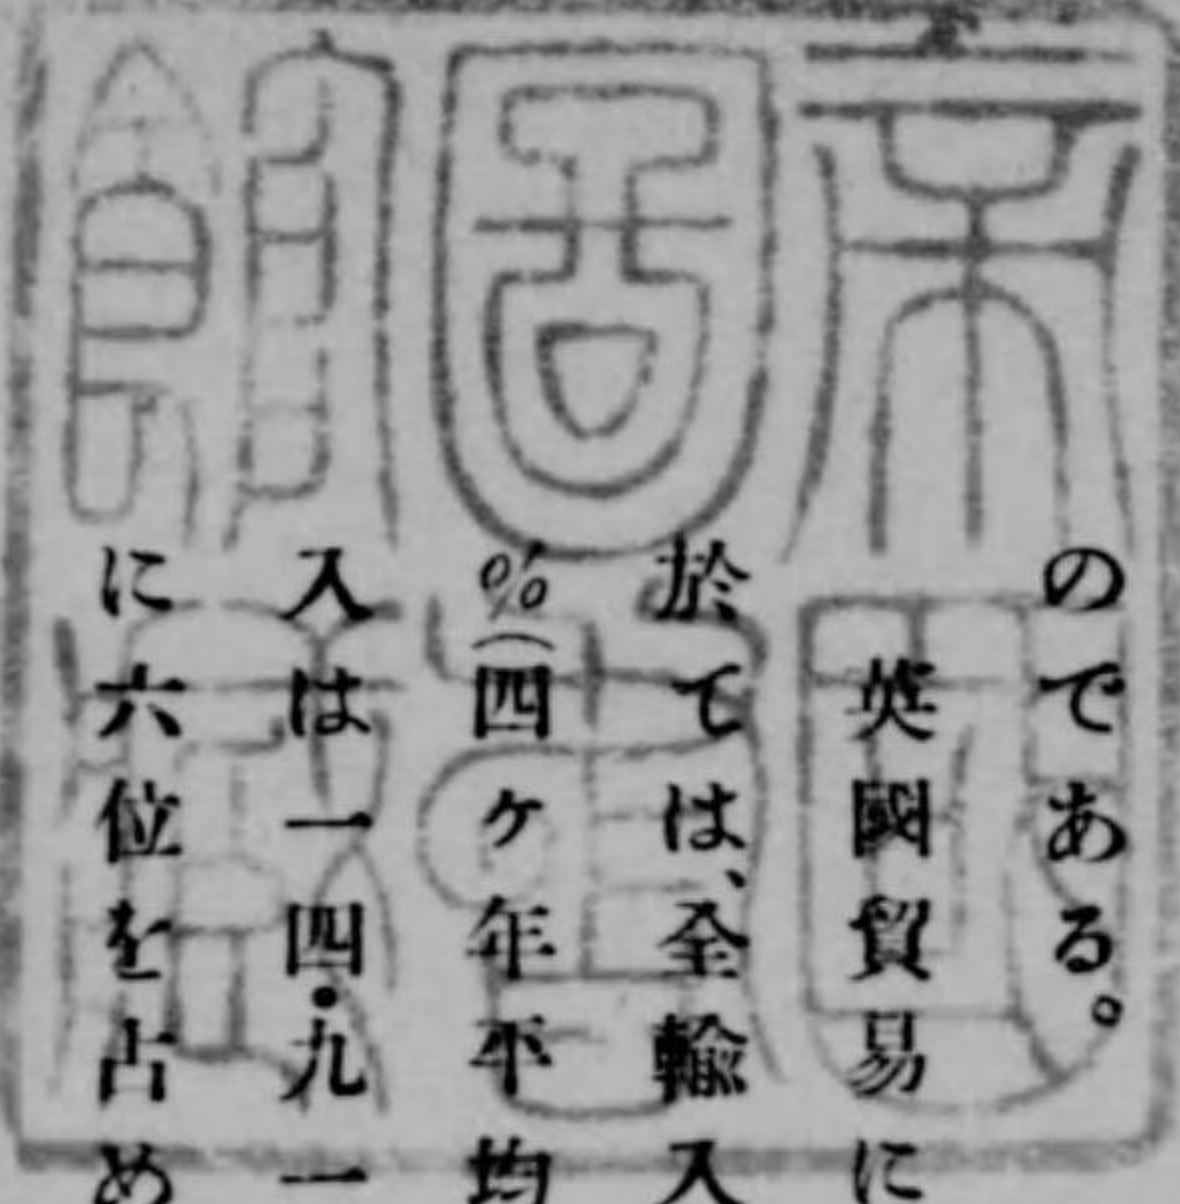 のである。
英國貿易に
於ては、全輸入
%(四ヶ年平均
入は一四・九一
に六位を占め
帝國圖書館藏